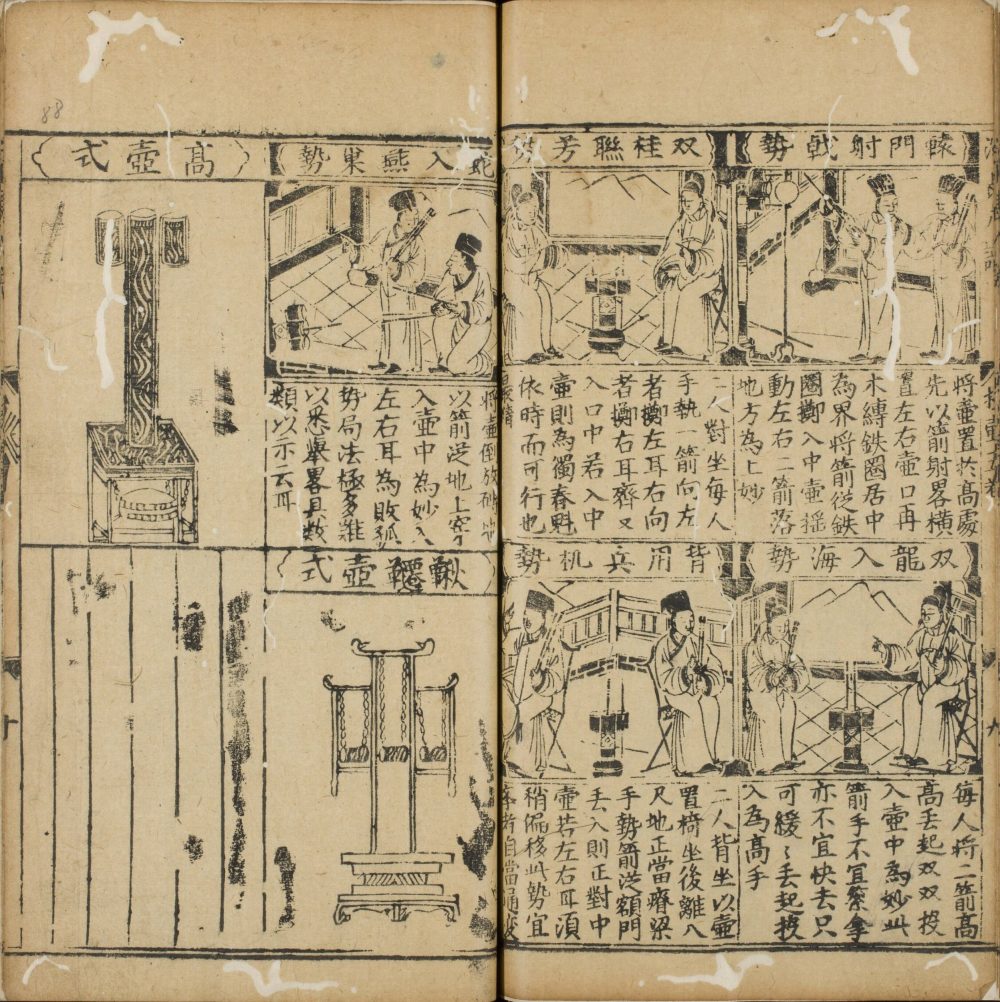 轅門射戟勢
將壺置於高處
先以箭射畧橫
置左右壺口再
木縛鉄圈居中
為界將箭從鉄
圈擲入中壺搖
動左右二箭落
地方為上妙
双桂聯芳勢
二人對坐每人
手執一箭向左
者擲左耳右向
者擲右耳齊又
入口中若入中
壺則為獨春魁
依時而可行也
双龍入海勢
每人將二箭高
高丟起双双投
入壺中為妙此
箭手不宜緊拿
亦不宜快去只
可緩〻丟起投
入為高手
背用兵机勢
二人背坐以壺
置椅坐後離八
尺地正當脊梁
手勢箭從額門
丟入則正對中
壺若左右耳須
稍偏移此勢宜
蛇入燕巢勢
將壺倒放
以箭從地上穿
入壺中為妙入
左右耳為敗孤
勢局法極多難
以悉舉畧具数
類以示云耳
高壺式
鞦韆壺式
十
九
88